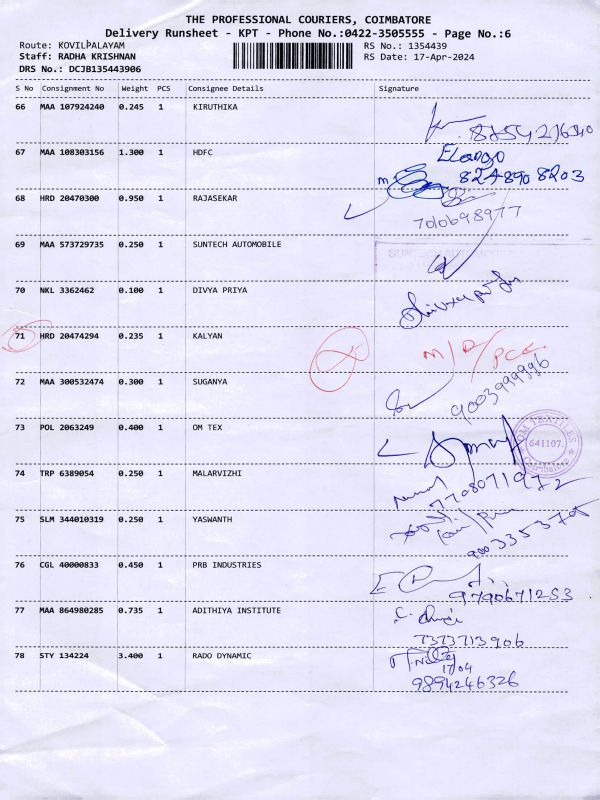 THE PROFESSIONAL COURIERS, COIMBATORE
Delivery Runsheet - KPT - Phone No.:0422-3505555 - Page No.:6
Route: KOVILPALAYAM RS No.: 1354439
Staff: RADHA KRISHNAN RS Date: 17-Apr-2024
DRS No.: DCJB135443906
S No Consignment No Weight PCS Consignee Details Signature
66 MAA 107924240 0.245 1 KIRUTHIKA
67 MAA 108303156 1.300 1 HDFC Elango
824 890 8203
68 HRD 20470300 0.950 1 RAJASEKAR
7010698977
69 MAA 573729735 0.250 1 SUNTECH AUTOMOBILE
70 NKL 3362462 0.100 1 DIVYA PRIYA
71 HRD 20474294 0.235 1 KALYAN
72 MAA 300532474 0.300 1 SUGANYA 9003999996
73 POL 2063249 0.400 1 OM TEX
OM TEXTILES
641107.
Coimbatore
74 TRP 6389054 0.250 1 MALARVIZHI
7708071972
75 SLM 344010319 0.250 1 YASWANTH
76 CGL 40000833 0.450 1 PRB INDUSTRIES
9790671253
77 MAA 864980285 0.735 1 ADITHIYA INSTITUTE
7373713906
78 STY 134224 3.400 1 RADO DYNAMIC
17/04
9894246326